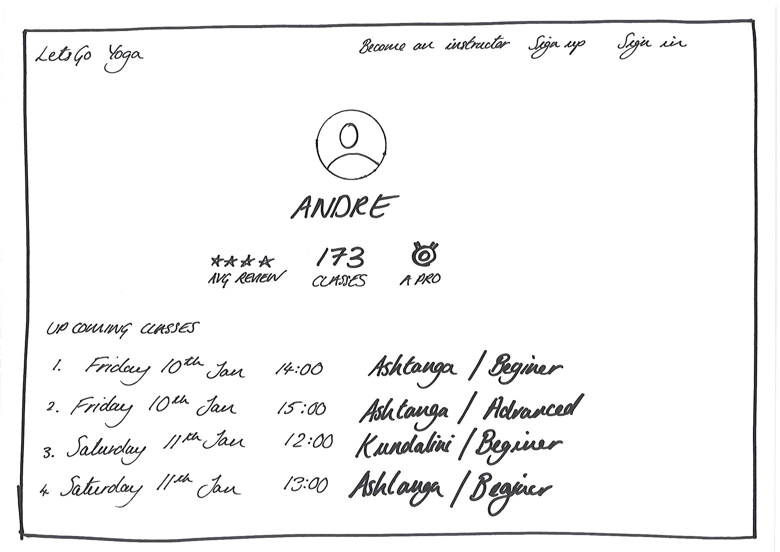 LetsGo Yoga Become an instructor Sign up Sign in
ANDRE
173
AVG REVIEW CLASSES A PRO
UPCOMING CLASSES
1. Friday 10th Jan 14:00 Ashtanga / Beginer
2. Friday 10th Jan 15:00 Ashtanga / Advanced
3. Saturday 11th Jan 12:00 Kundalini / Beginer
4. Saturday 11th Jan 13:00 Ashtanga / Beginer